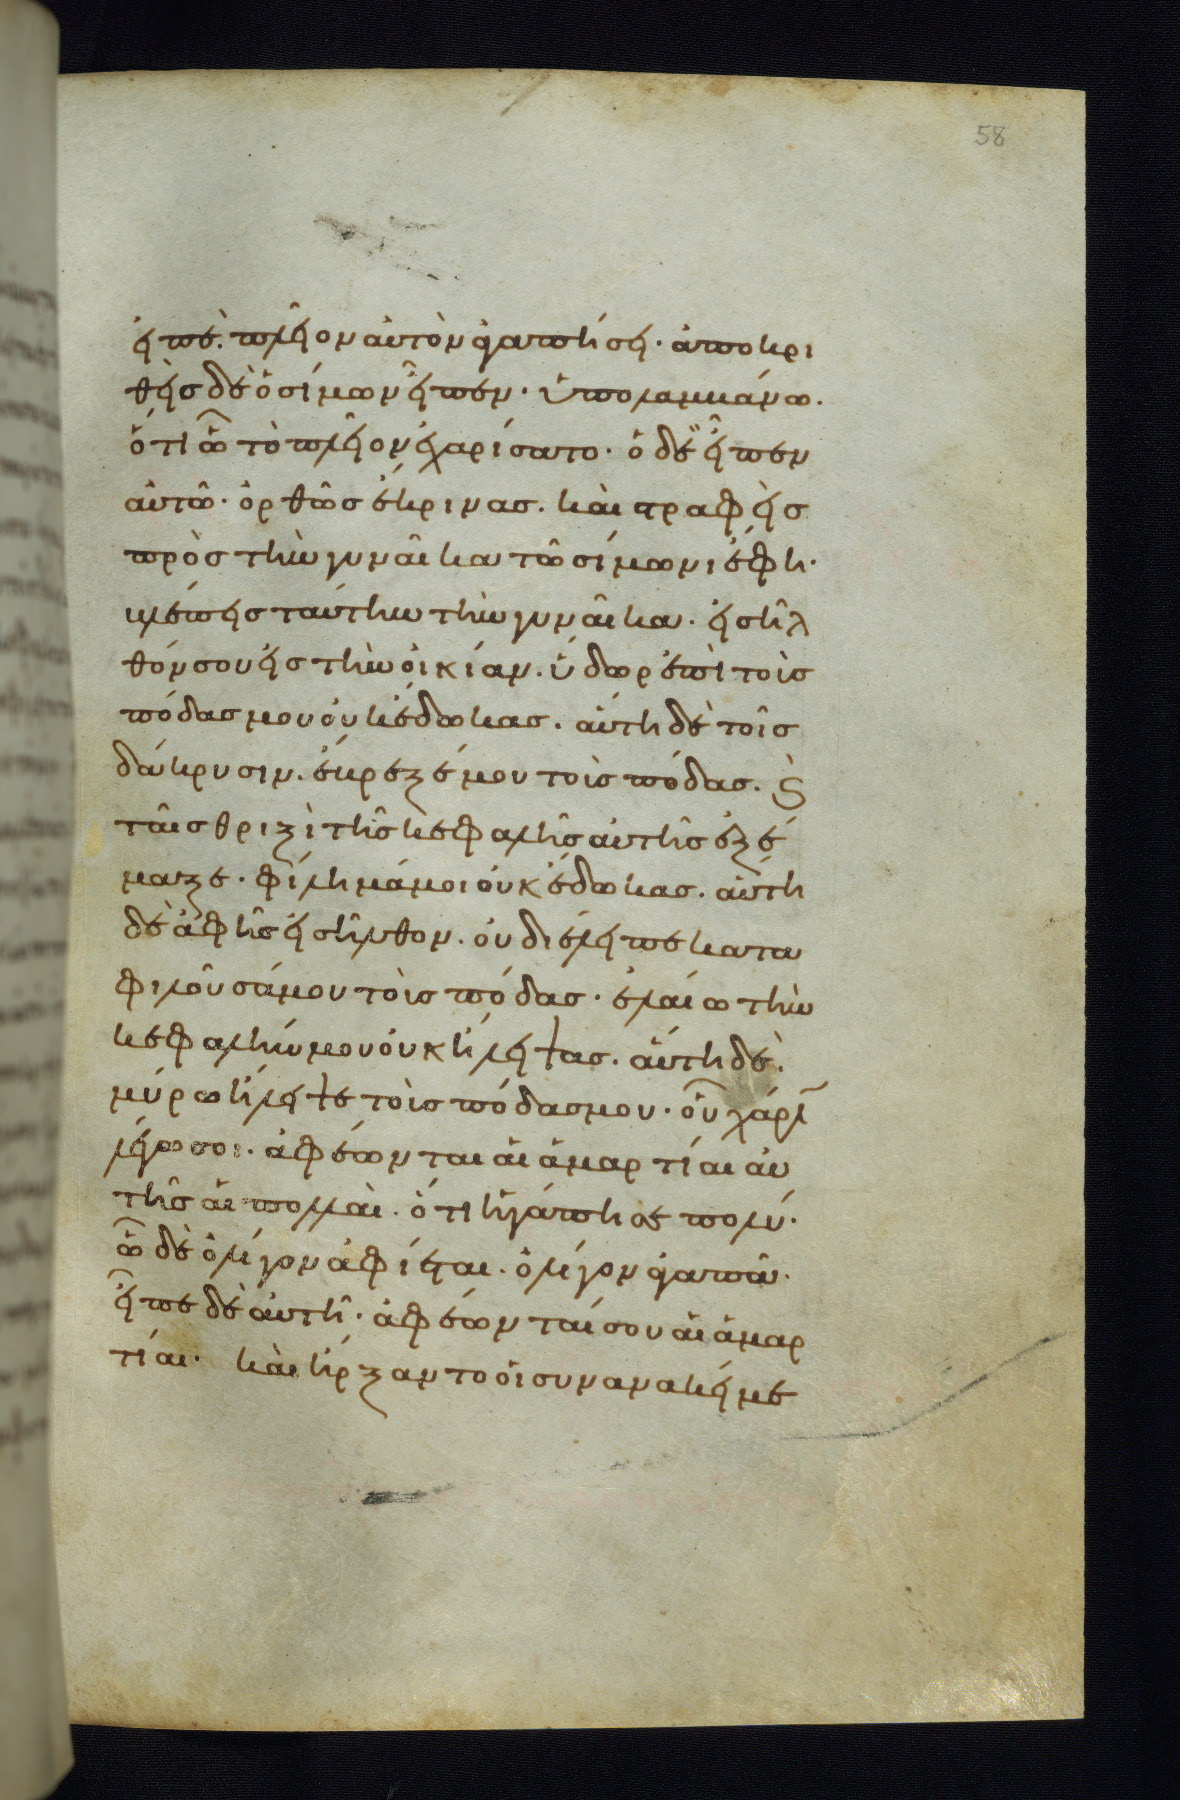 58
εἰπὲ. πλεῖον αὐτὸν ἀγαπήσει· ἀποκρι
θεὶς δὲ ὁ σίμων εἶπεν· ὑπολαμβάνω.
ὅτι ὧ τὸ πλεῖον ἐχαρίσατο· ὁ δὲ εἶπεν
αὐτῶ· ὀρθῶς ἔκρινας. καὶ στραφεὶς
πρὸς τὴν γυναῖκα τῶ σίμωνι ἔφη·
βλέπεις ταύτην τὴν γυναῖκα. εἰσῆλ
θόν σου εἰς τὴν οἰκίαν. ὕδωρ ἐπὶ τοὺς
πόδας μου οὐκ ἔδωκας. αὕτη δὲ τοῖς
δάκρυσιν. ἔβρεξέ μου τοὺς πόδας. ϗ
ταῖς θριξὶ τῆς κεφαλῆς αὐτῆς ἐξέ
μαξε. φίλημά μοι οὐκ ἔδωκας. αὕτη
δὲ ἀφ ἧς εἰσῆλθον. οὐ διέλειπε κατα
φιλοῦσά μου τοὺς πόδας· ἐλαίω τὴν
κεφαλήν μου οὐκ ἤλειψας. αὕτη δὲ.
μύρω ἤλειψε τοὺς πόδας μου. οὗ χάριν
λέγω σοι. ἀφέωνται αἱ ἁμαρτίαι αὐ
τῆς αἱ πολλαὶ. ὅτι ἠγάπησε πολύ·
ὧ δὲ ὀλίγον ἀφίεται. ὀλίγον ἀγαπᾶ.
εἶπε δὲ αὐτῆ· ἀφέωνταί σου αἱ ἁμαρ
τίαι. καὶ ἤρξαντο οἱ συνανακείμε